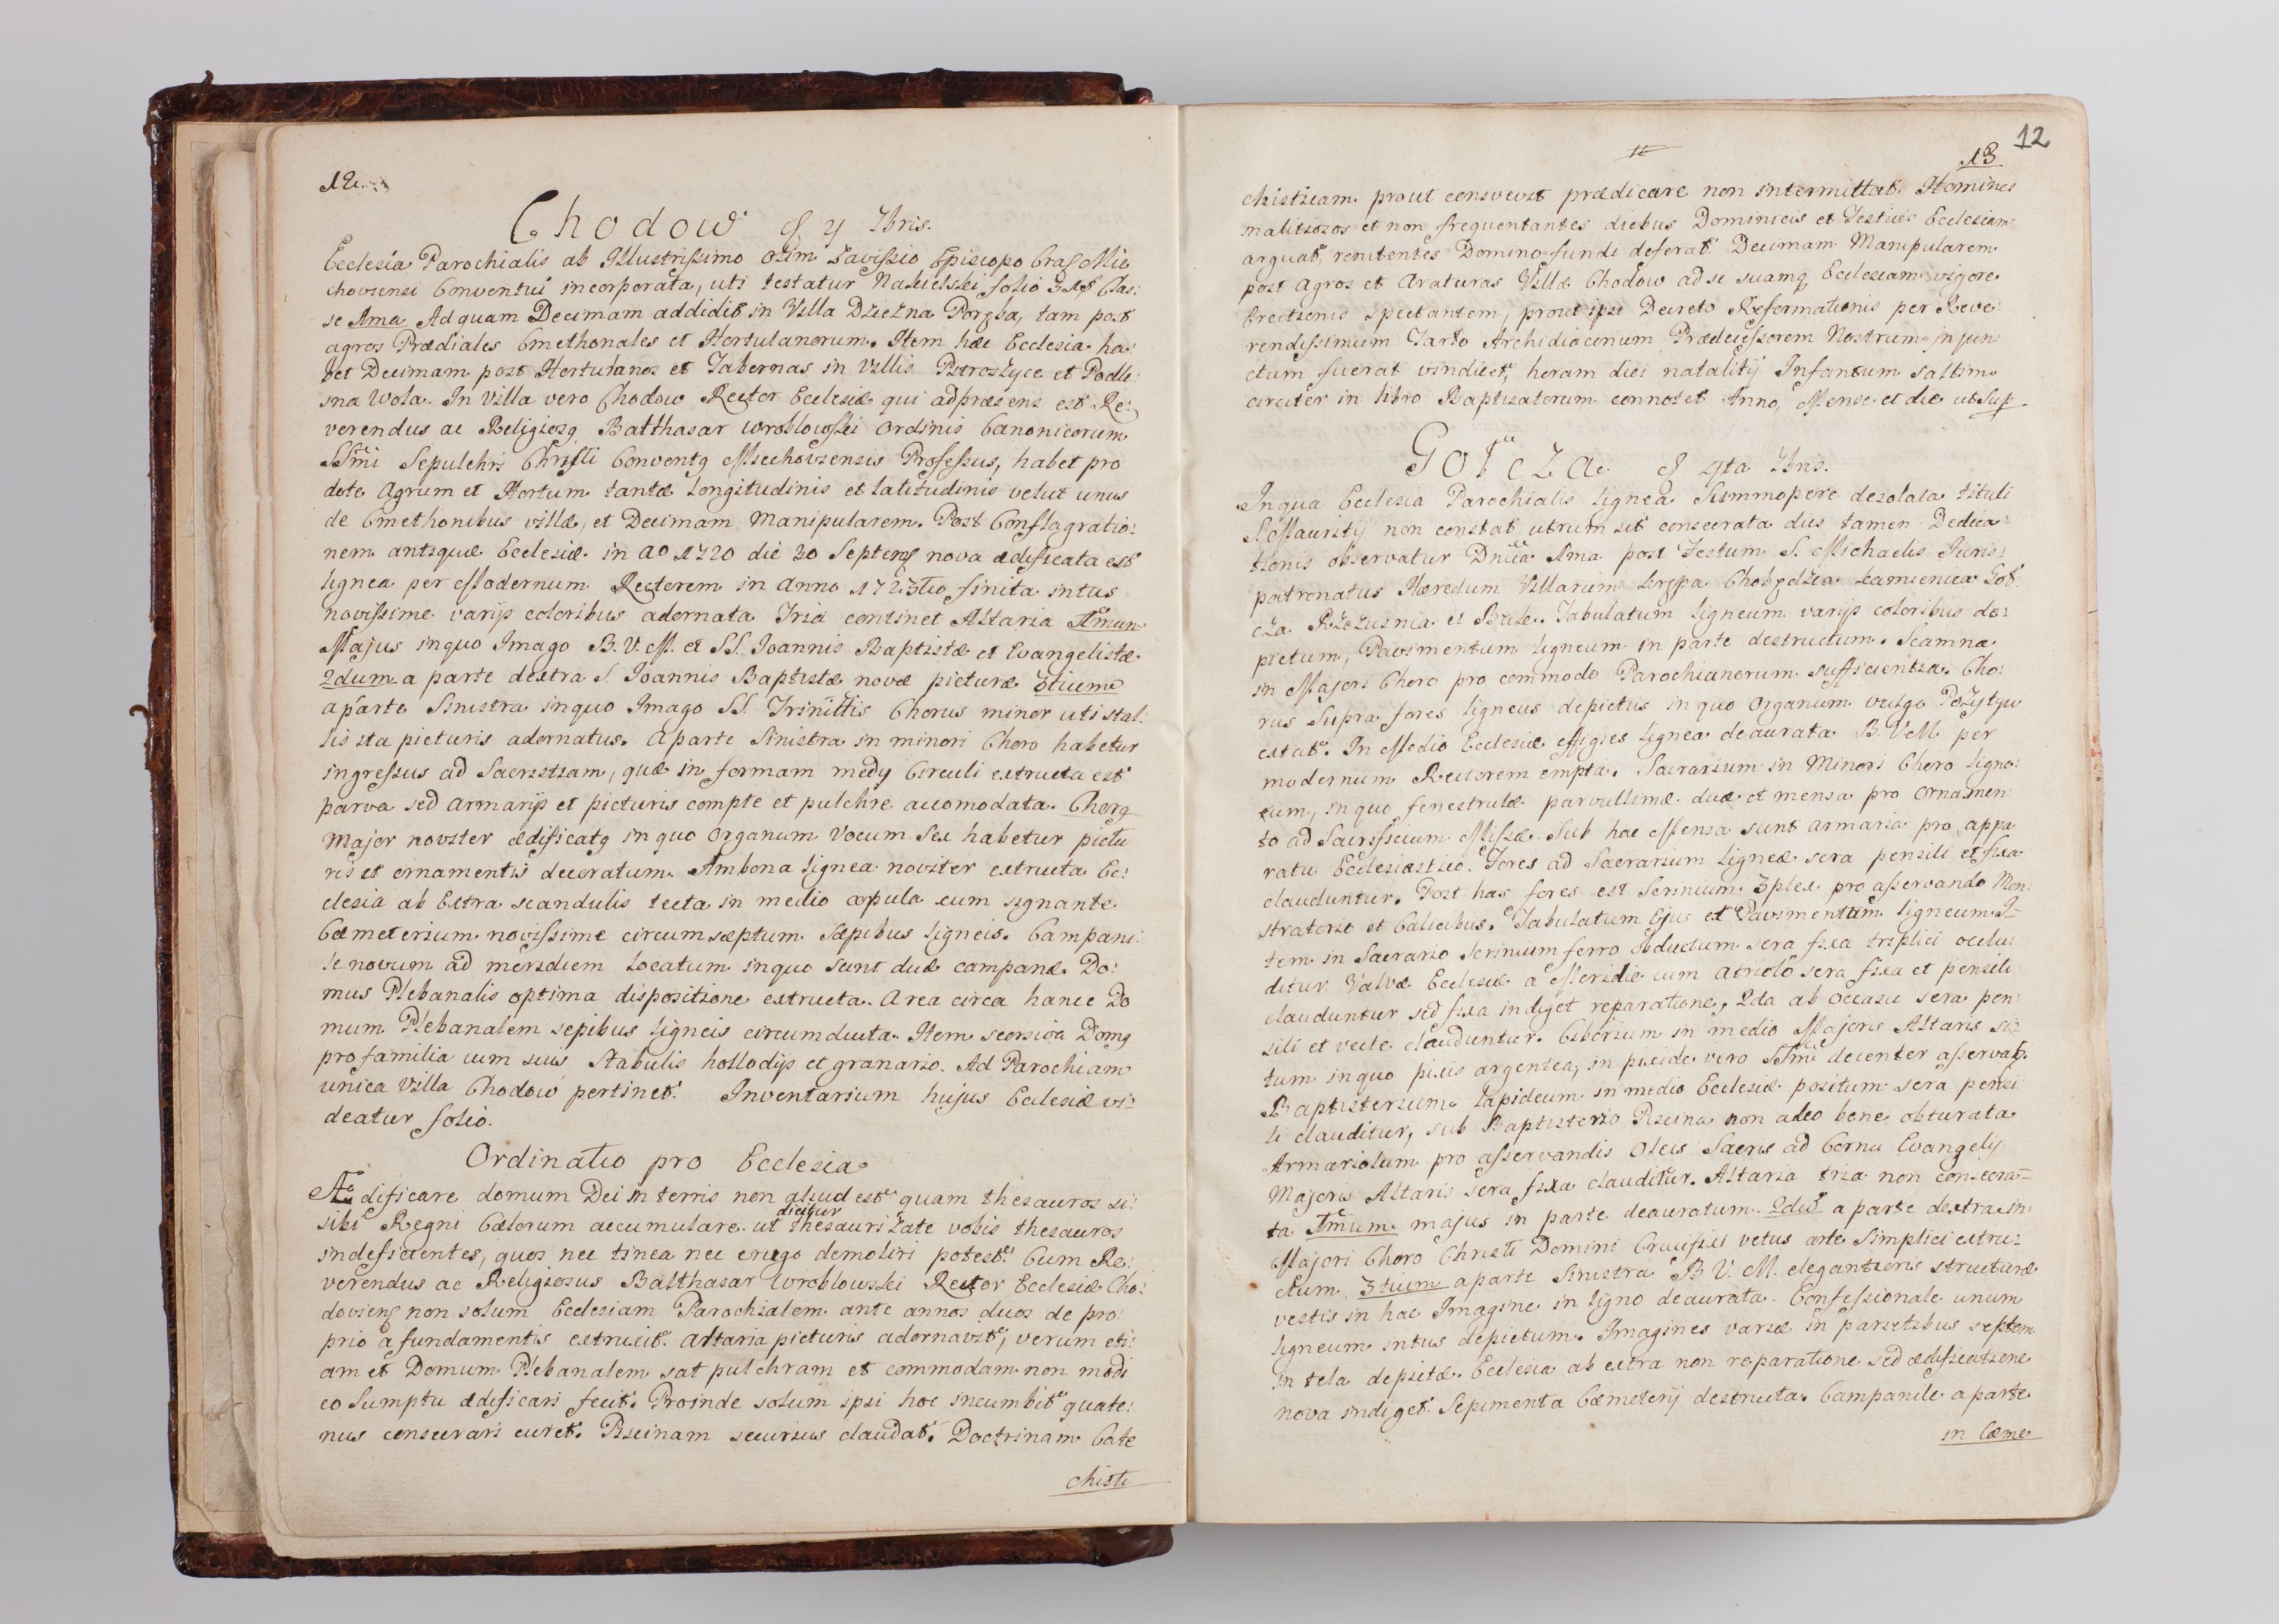 12.
Chodow et 4 7bris.
Ecclesia Parochialis ab Illustrissimo olim Zavissio Episcopo Crac Mie
choviensi Conventui incorporata, uti testatur Nakielski folio Clas:
se Ima Ad quam Decimam addidit in Villa Dziezna Poręba, tam post
agros Prædiales Cmethonales et Hortulanorum. Item hæc Ecclesia ha:
bet Decimam post Hortulanos et Tabernas in Villis Pstroszyce et Podle:
sna Wola. In Villa vero Chodow Rector Ecclesiæ qui ad præsens est Re:
verendus ac Religiosq Balthasar Wroblowski Ordinis Canonicorum
SSmi Sepulchri Christi Conventq Miechoviensis Professus, habet pro
dote Agrum et Hortum tantæ longitudinis et latitudinis velut unus
de Cmethonibus villæ, et Decimam Manipularem. Post Conflagratio:
nem antiquæ Ecclesiæ in Ao 1720 die 20 Septembr nova ædificata est
lignea per Modernum Rectorem in Anno 1723tio finita intus
novissime varijs coloribus adornata Tria continet Altaria Imum
Majus in quo Imago B. V. M. et SS. Joannis Baptistæ et Evangelistæ
2dum a parte dextra S. Joannis Baptistæ novæ picturæ 3tium
a parte Sinistra in quo Imago SS. Trinittis Chorus minor uti stal:
lis ita picturis adornatus. A parte Sinistra in minori Choro habetur
ingressus ad Sacristiam, quæ in formam medij Circuli extructa est
parva sed armarijs et picturis compte et pulchre accomodata. Chorq
Major noviter ædificatq in quo Organum Vocum Sex habetur pictu
ris et ornamentis decoratum. Ambona lignea noviter extructa Ec:
clesia ab Extra scandulis tecta in medio copula cum signante
Cæmeterium novissime circumsæptum sæpibus ligneis. Campani:
le novum ad meridiem locatum in quo sunt duæ campanæ. Do:
mus Plebanalis optima dispositione extructa. Area circa hanc Do
mum Plebanalem sepibus ligneis circumducta. Item seorsiva Domq
pro familia cum suis Stabulis hollodijs et granario. Ad Parochiam
unica Villa Chodow pertinet. Inventarium hujus Ecclesiæ vi:
deatur folio.
Ordinatio pro Ecclesia
Ædificare domum Dei in terris non aliud est quam thesauros si:
dicitur
sibi Regni Cælorum accumulare ut thesaurizate vobis thesauros
indeficientes, quos nec tinea nec erugo demoliri potest. Cum Re:
verendus ac Religiosus Balthasar Wroblowski Rector Ecclesiæ Cho:
doviens non solum Ecclesiam Parochialem ante annos duos de pro
prio a fundamentis extruxit. Altaria picturis adornavit, verum eti:
am et Domum Plebanalem sat pulchram et commodam non modi
co Sumptu ædificari fecit. Proinde solum ipsi hoc incumbit quate:
nus consecrari curet. Piscinam securius claudat. Doctrinam Cate
chisti
12
11
13
chisticam prout consvevit prædicare non intermittat. Homines
malitiosos et non frequentantes diebus Dominicis et Festivis Ecclesiam
arguat, renitentes Domino fundi deferat. Decimam Manipularem
post Agros et Araturas Villæ Chodow ad se suamq Ecclesiam vigore
Erectionis spectantem, prout ipsi Decreto Reformationis per Reve
rendissimum Tarło Archidiaconum Prædecessorem Nostrum injun
ctum fuerat vindicet, horam diei natalitij Infantum saltim
circiter in libro Baptisatorum connotet Anno, Mense et die ut Sup
Gołcza et 4ta 7bris.
In qua Ecclesia Parochialis lignea Summopere desolata tituli
S. Mauritij non constat utrum sit consecrata dies tamen Dedica:
tionis observatur Dnica Ima post Festum S. Michaelis. Juris:
patronatus Hæredum Villarum Chobędzia kamienica Goł:
cza Rzezusnia et Buk. Tabulatum ligneum varijs coloribus de:
pictum, Pavimentum ligneum in parte destructum. Scamna
in Majori Choro pro commodo Parochianorum sufficientia. Cho:
rus Supra fores ligneus depictus in quo Organum vulgo Pozytyw
extat. In Medio Ecclesiæ effigies lignea deaurata B.V.M per
modernum Rectorem empta. Sacrarium in Minori Choro ligne:
um, in quo fenestrulæ parvullimæ duæ et mensa pro Ornamen
to ad Sacrificium Missæ. Sub hac Mensa sunt armaria pro appa
ratu Ecclesiastico. Fores ad Sacrarium ligneæ sera pensili et fixa
clauduntur. Post has fores est Scrinium 3plex pro asservando Mon:
stratorio et Calicibus. Tabulatum Ejus et Pavimentum ligneum. I:
tem in Sacrario Scrinium ferro obductum sera fixa triplici oclu:
ditur. Valvæ Ecclesiæ a Meridie cum atriolo sera fixa et pensili
clauduntur sed fixa indiget reparatione, 2da ab occasu sera pen:
sili et vecte clauduntur. Ciborium in medio Majoris Altaris si:
tum in quo pixis argentea, in pixide vero SSmi decenter asservat.
Baptisterium lapideum in medio Ecclesiæ positum sera pensi
li clauditur, sub Baptisterio Piscina non adeo bene obturata
Armariolum pro asservandis Oleis Sacris ad Cornu Evangelij
Majoris Altaris sera fixa clauditur. Altaria tria non consecra=
ta Imum majus in parte deauratum. 2dum a parte dextra in
Majori Choro Christi Domini Crucifixi vetus arte Simplici extru:
ctum 3tium a parte Sinistra B V. M. elegantioris structuræ
vestis in hac Imagine in ligno deaurata. Confessionale unum
ligneum intus depictum. Imagines variæ in parietibus septem
in tela depictæ. Ecclesia ab extra non reparatione sed ædificatione
nova indiget. Sepimenta Cæmeterij destructa. Campanile a parte
in Cæme